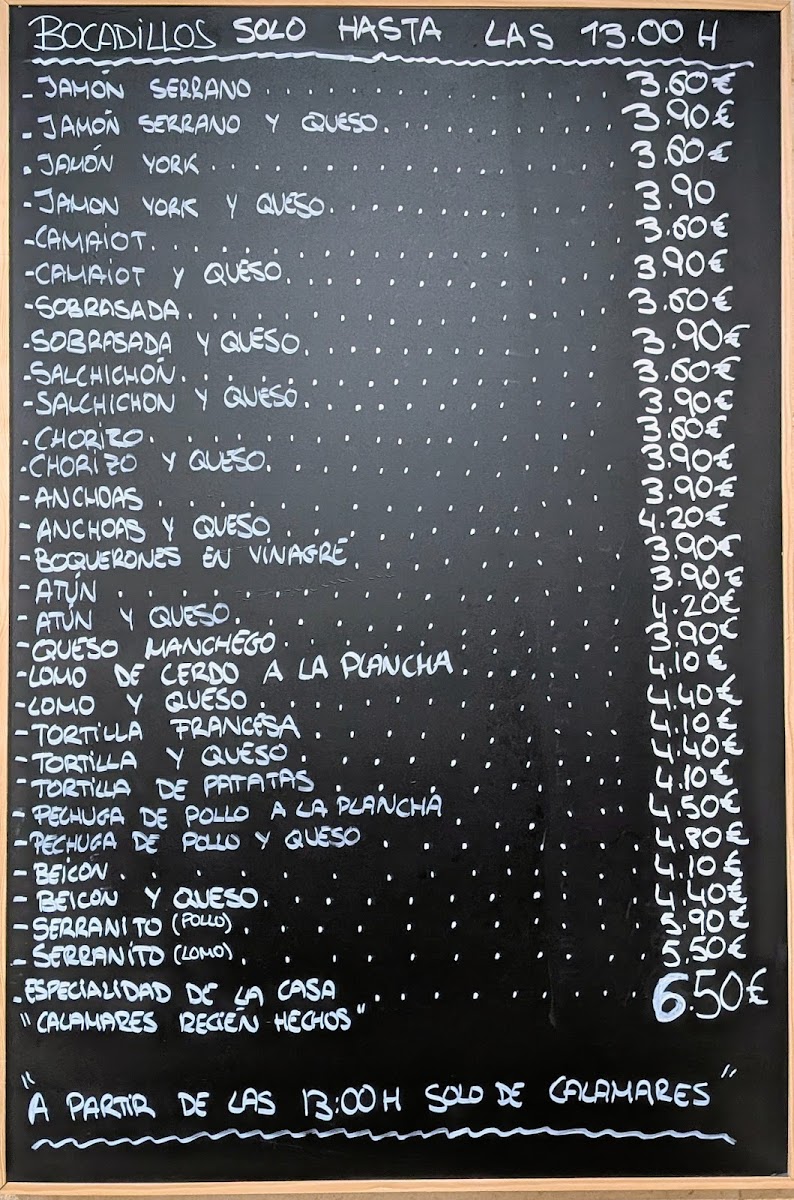 BOCADILLOS SOLO HASTA LAS 13.00 H
- JAMÓN SERRANO . . . . . . . . . . 3.60€
- JAMÓN SERRANO Y QUESO . . . . . . . . . . 3.90€
- JAMÓN YORK . . . . . . . . . . 3.60€
- JAMON YORK Y QUESO . . . . . . . . . . 3.90
- CAMAIOT . . . . . . . . . . 3.60€
- CAMAIOT Y QUESO . . . . . . . . . . 3.90€
- SOBRASADA . . . . . . . . . . 3.60€
- SOBRASADA Y QUESO . . . . . . . . . . 3.90€
- SALCHICHÓN . . . . . . . . . . 3.60€
- SALCHICHON Y QUESO . . . . . . . . . . 3.90€
- CHORIZO . . . . . . . . . . 3.60€
- CHORIZO Y QUESO . . . . . . . . . . 3.90€
- ANCHOAS . . . . . . . . . . 3.90€
- ANCHOAS Y QUESO . . . . . . . . . . 4.20€
- BOQUERONES EN VINAGRE . . . . . . . . . . 3.90€
- ATÚN . . . . . . . . . . 3.90€
- ATÚN Y QUESO . . . . . . . . . . 4.20€
- QUESO MANCHEGO . . . . . . . . . . 3.90€
- LOMO DE CERDO A LA PLANCHA . . . . . . . . . . 4.10€
- LOMO Y QUESO . . . . . . . . . . 4.40€
- TORTILLA FRANCESA . . . . . . . . . . 4.10€
- TORTILLA Y QUESO . . . . . . . . . . 4.40€
- TORTILLA DE PATATAS . . . . . . . . . . 4.10€
- PECHUGA DE POLLO A LA PLANCHA . . . . . . . . . . 4.50€
- PECHUGA DE POLLO Y QUESO . . . . . . . . . . 4.80€
- BEICON . . . . . . . . . . 4.10€
- BEICON Y QUESO . . . . . . . . . . 4.40€
- SERRANITO (POLLO) . . . . . . . . . . 5.90€
- SERRANITO (LOMO) . . . . . . . . . . 5.50€
- ESPECIALIDAD DE LA CASA . . . . . . . . . . 6.50€
"CALAMARES RECIÉN HECHOS"
"A PARTIR DE LAS 13:00 H SOLO DE CALAMARES"